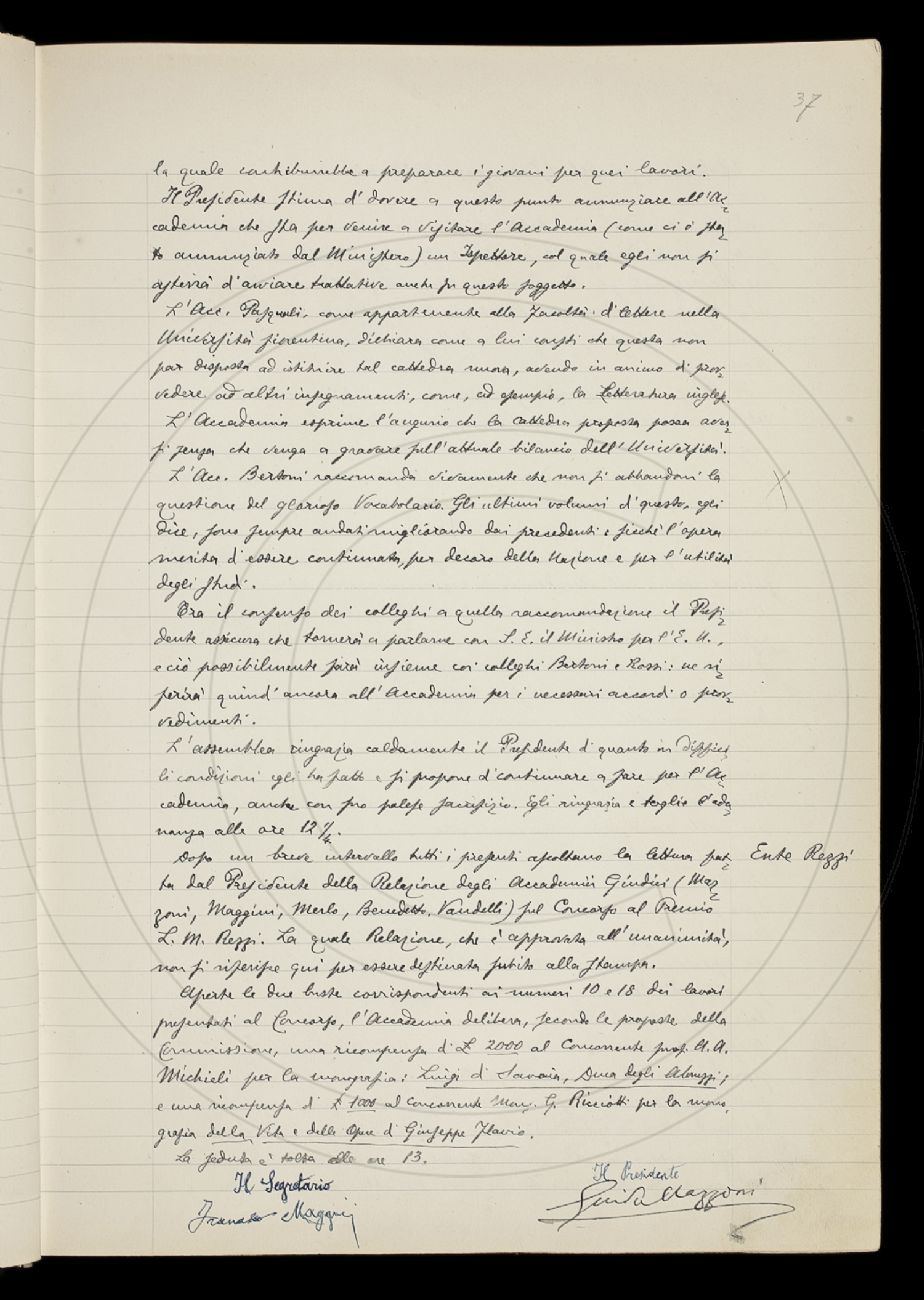 37
la quale contribuirebbe a preparare i giovani per quei lavori.
Il Presidente stima d'dovere a questo punto annunziare all'Ac-
cademia che sta per venire a visitare l'Accademia (come ci è sta-
to annunziato dal Ministero) un Ispettore, col quale egli non si
asterrà d'avviare trattative anche su questo soggetto.
L'Acc. Pasquali, come appartenente alla Facoltà d'lettere nella
Università fiorentina, dichiara come a lui consti che questa non
par disposta ad istituire tal cattedra nuova, avendo in animo di prov-
vedere ad altri insegnamenti, come, ad esempio, la Letteratura inglese.
L'Accademia esprime l'augurio che la cattedra proposta possa aver-
si senza che venga a gravare sull'attuale bilancio dell'Università.
L'Acc. Bertoni raccomanda vivamente che non si abbandoni la
questione del glorioso Vocabolario. Gli ultimi volumi d'questo, egli
dice, sono sempre andati migliorando dai precedenti: sicché l'opera
merita d'essere continuata, per decoro della Nazione e per l'utilità
degli studi.
Tra il consenso dei colleghi a quella raccomandazione il Presi-
dente assicura che tornerà a parlarne con S. E. il Ministro per l'E. N.,
e ciò possibilmente farà insieme coi colleghi Bertoni e Rossi: ne ri-
ferirà quindi ancora all'Accademia per i necessari accordi o prov-
vedimenti.
L'assemblea ringrazia caldamente il Presidente d'quanto in diffici-
li condizioni egli ha fatto e si propone d'continuare a fare per l'Ac-
cademia, anche con suo palese sacrifizio. Egli ringrazia e scoglie l'adu-
nanza alle ore 12 1/4.
Dopo un breve intervallo tutti i presenti ascoltano la lettura fat-
Ente Rezzi
ta dal Presidente della Relazione degli Accademici Giudici (Maz-
zoni, Maggini, Merlo, Benedetto, Vandelli) sul Concorso al Premio
L. M. Rezzi. La quale Relazione, che è approvata all'unanimità,
non si riferisce qui per essere destinata subito alla stampa.
Aperte le due buste corrispondenti ai numeri 10 e 18 dei lavori
presentati al Concorso, l'Accademia delibera, secondo le proposte della
Commissione, una ricompensa d'£ 2000 al Concorrente prof. A. A.
Michieli per la monografia: Luigi d'Savoia, Duca degli Abruzzi;
e una ricompensa d' £ 1000 al Concorrente Mons. G. Ricciotti per la mono-
grafia della Vita e delle Opere d'Giuseppe Flavio.
La seduta è tolta alle ore 13.
Il Segretario
Il Presidente
Francesco Maggini
Guido Mazzoni